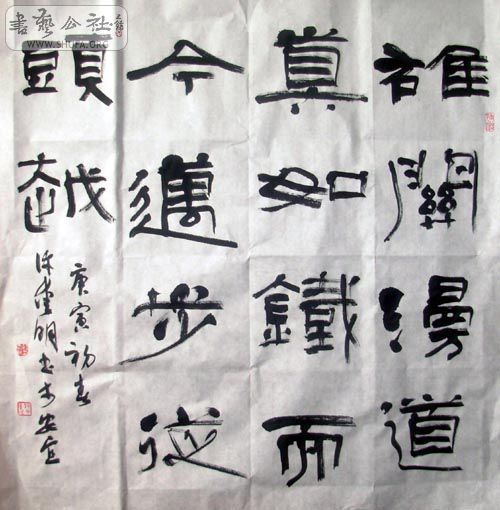 雄關漫道
真如鐵而
今邁步從
頭越
庚寅初春
明书於
書藝公社
WWW.SHUFA.ORG